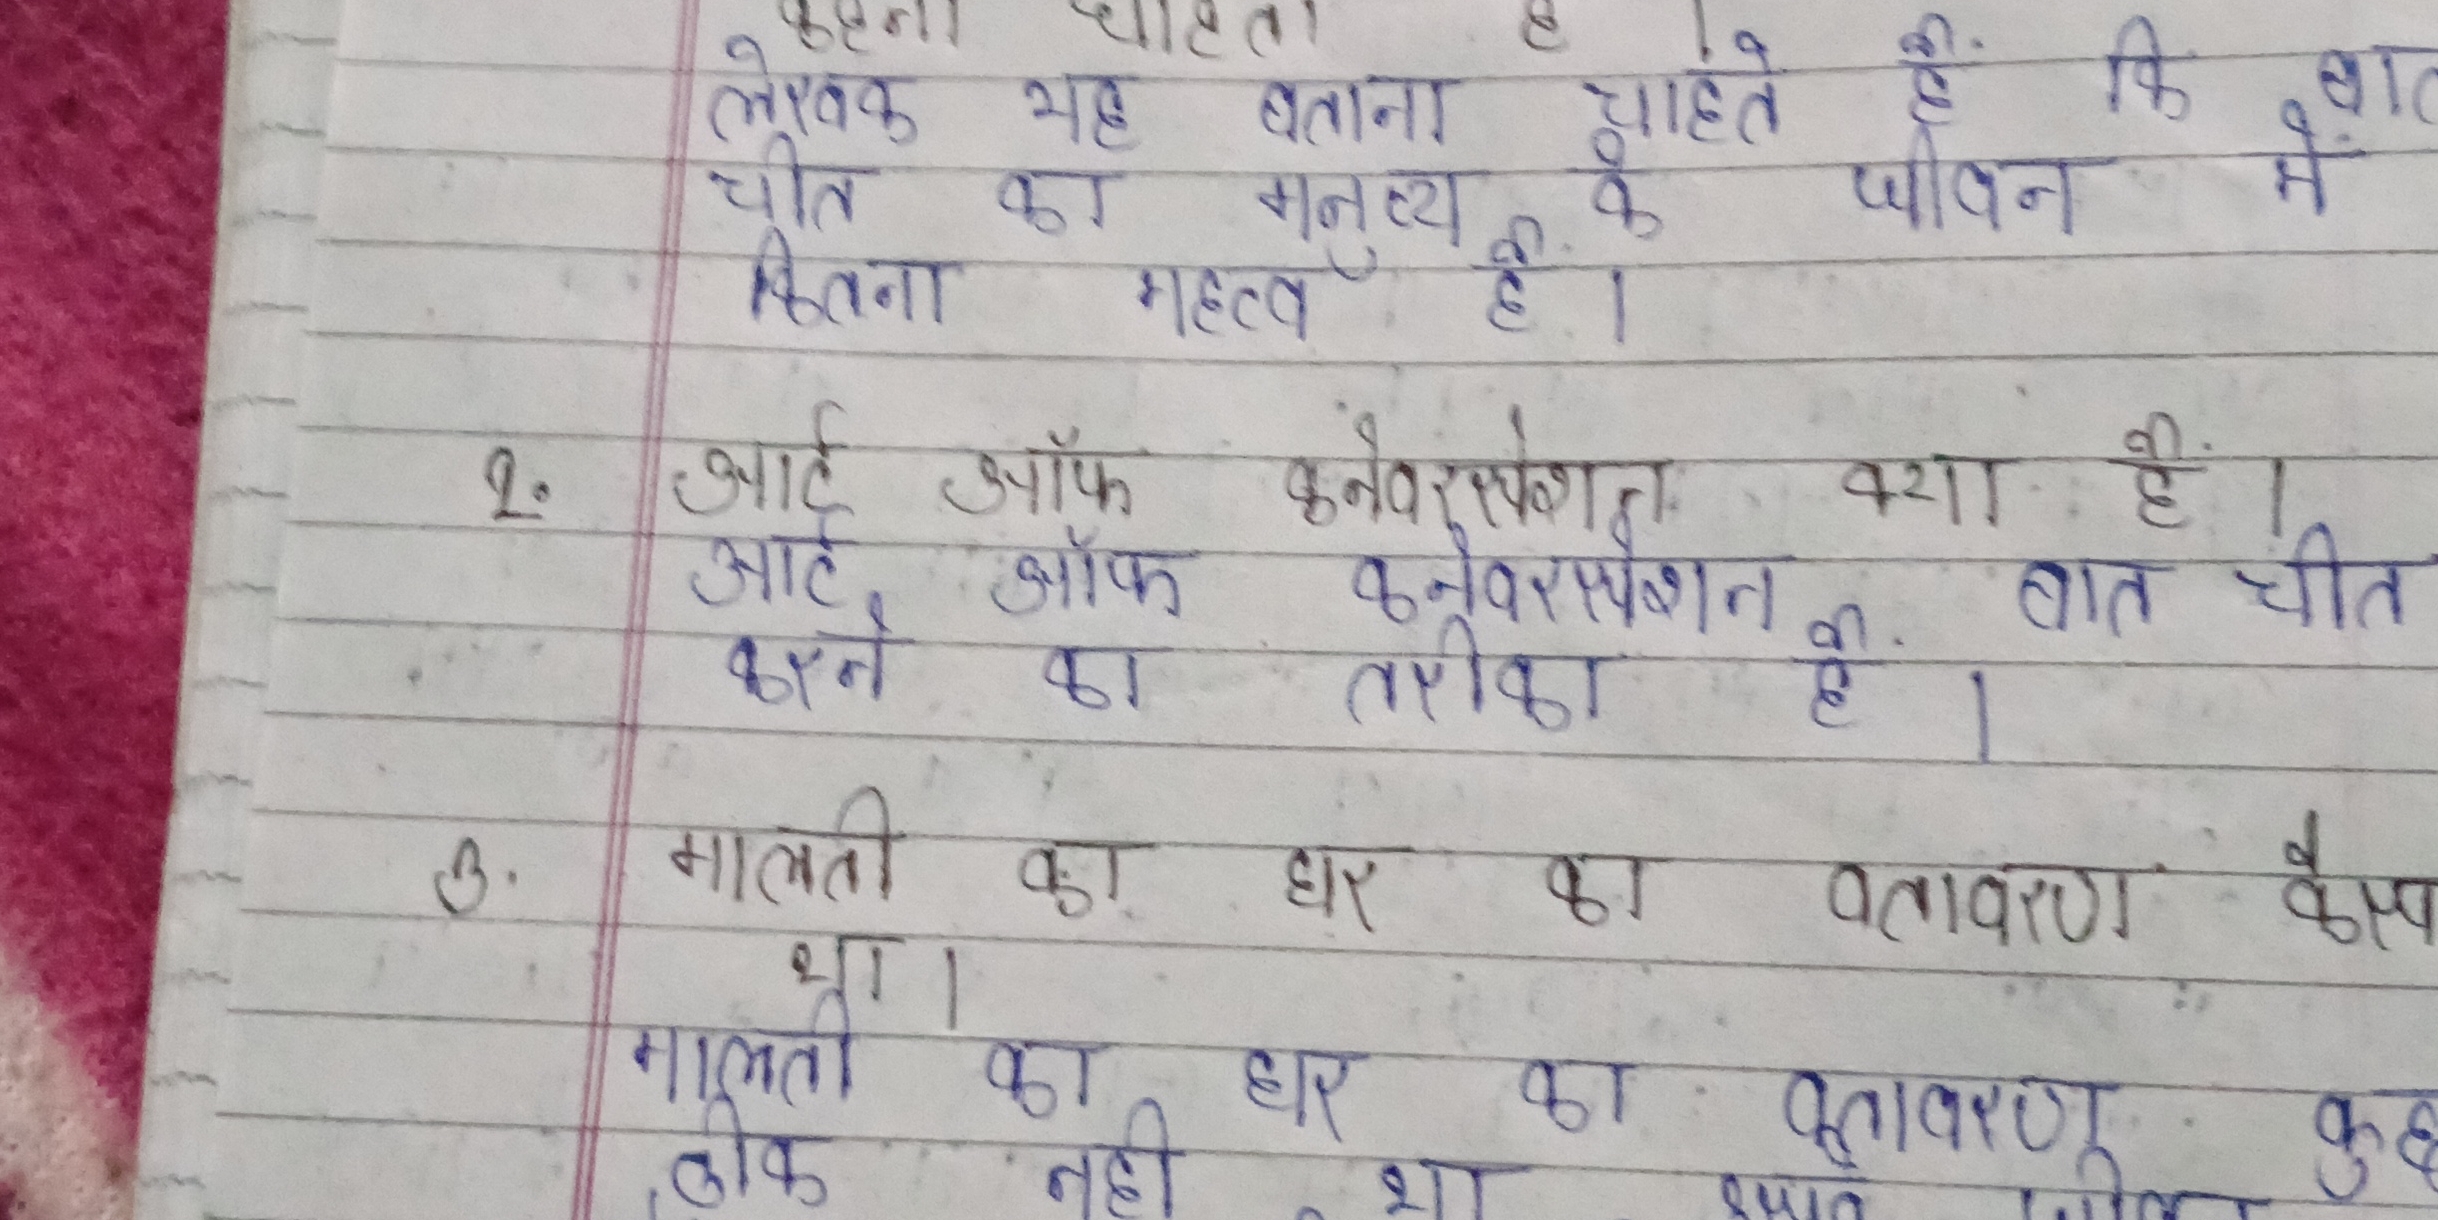 कहना चाहता है ।
लेखक यह बताना चाहते हैं कि बात
चीत का मनुष्य के जीवन में
कितना महत्व हैं ।
2. आर्ट ऑफ कनवेरसेशन क्या हैं ।
आर्ट ऑफ कनवेरसेशन बात चीत
करने का तरीका हैं ।
3. मालती का घर का वतावरण
था ।
मालती का घर का वतावरण
ठीक नही था